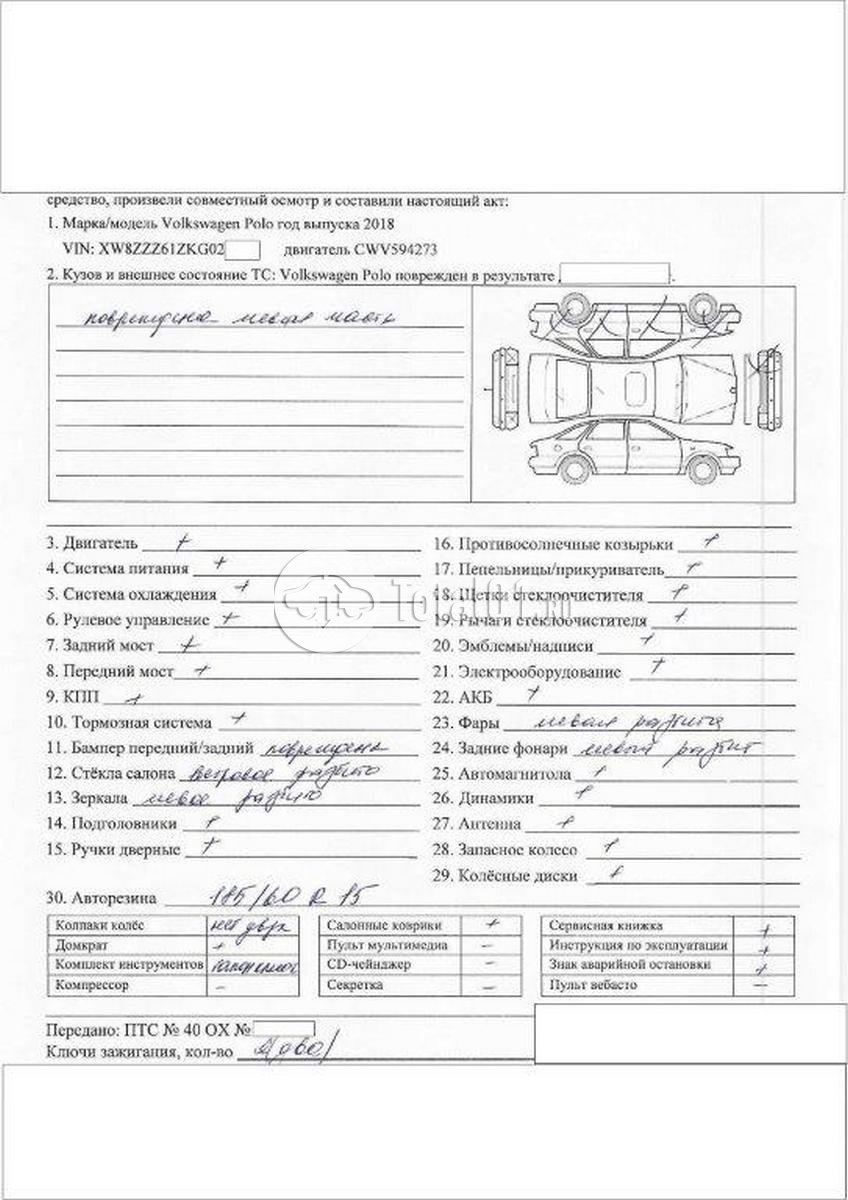 средство, произвели совместный осмотр и составили настоящий акт:
1. Марка/модель Volkswagen Polo год выпуска 2018
VIN: XW8ZZZ61ZKG02 двигатель CWV594273
2. Кузов и внешнее состояние ТС: Volkswagen Polo поврежден в результате .
повреждена левая часть
3. Двигатель +
16. Противосолнечные козырьки +
4. Система питания +
17. Пепельницы/прикуриватель +
5. Система охлаждения +
18. Щетки стеклоочистителя +
6. Рулевое управление +
19. Рычаги стеклоочистителя +
7. Задний мост +
20. Эмблемы/надписи +
8. Передний мост +
21. Электрооборудование +
9. КПП +
22. АКБ +
10. Тормозная система +
23. Фары левая разбита
11. Бампер передний/задний повреждены
24. Задние фонари левый разбит
12. Стёкла салона ветровое разбито
25. Автомагнитола +
13. Зеркала левое разбито
26. Динамики +
14. Подголовники +
27. Антенна +
15. Ручки дверные +
28. Запасное колесо +
29. Колёсные диски +
30. Авторезина 185/60 R 15
Колпаки колёс нет двух
Салонные коврики +
Сервисная книжка +
Домкрат +
Пульт мультимедиа –
Инструкция по эксплуатации +
Комплект инструментов
CD-чейнджер –
Знак аварийной остановки +
Компрессор –
Секретка –
Пульт вебасто –
Передано: ПТС № 40 ОХ №
Ключи зажигания, кол-во 2 /два/
Total01.ru